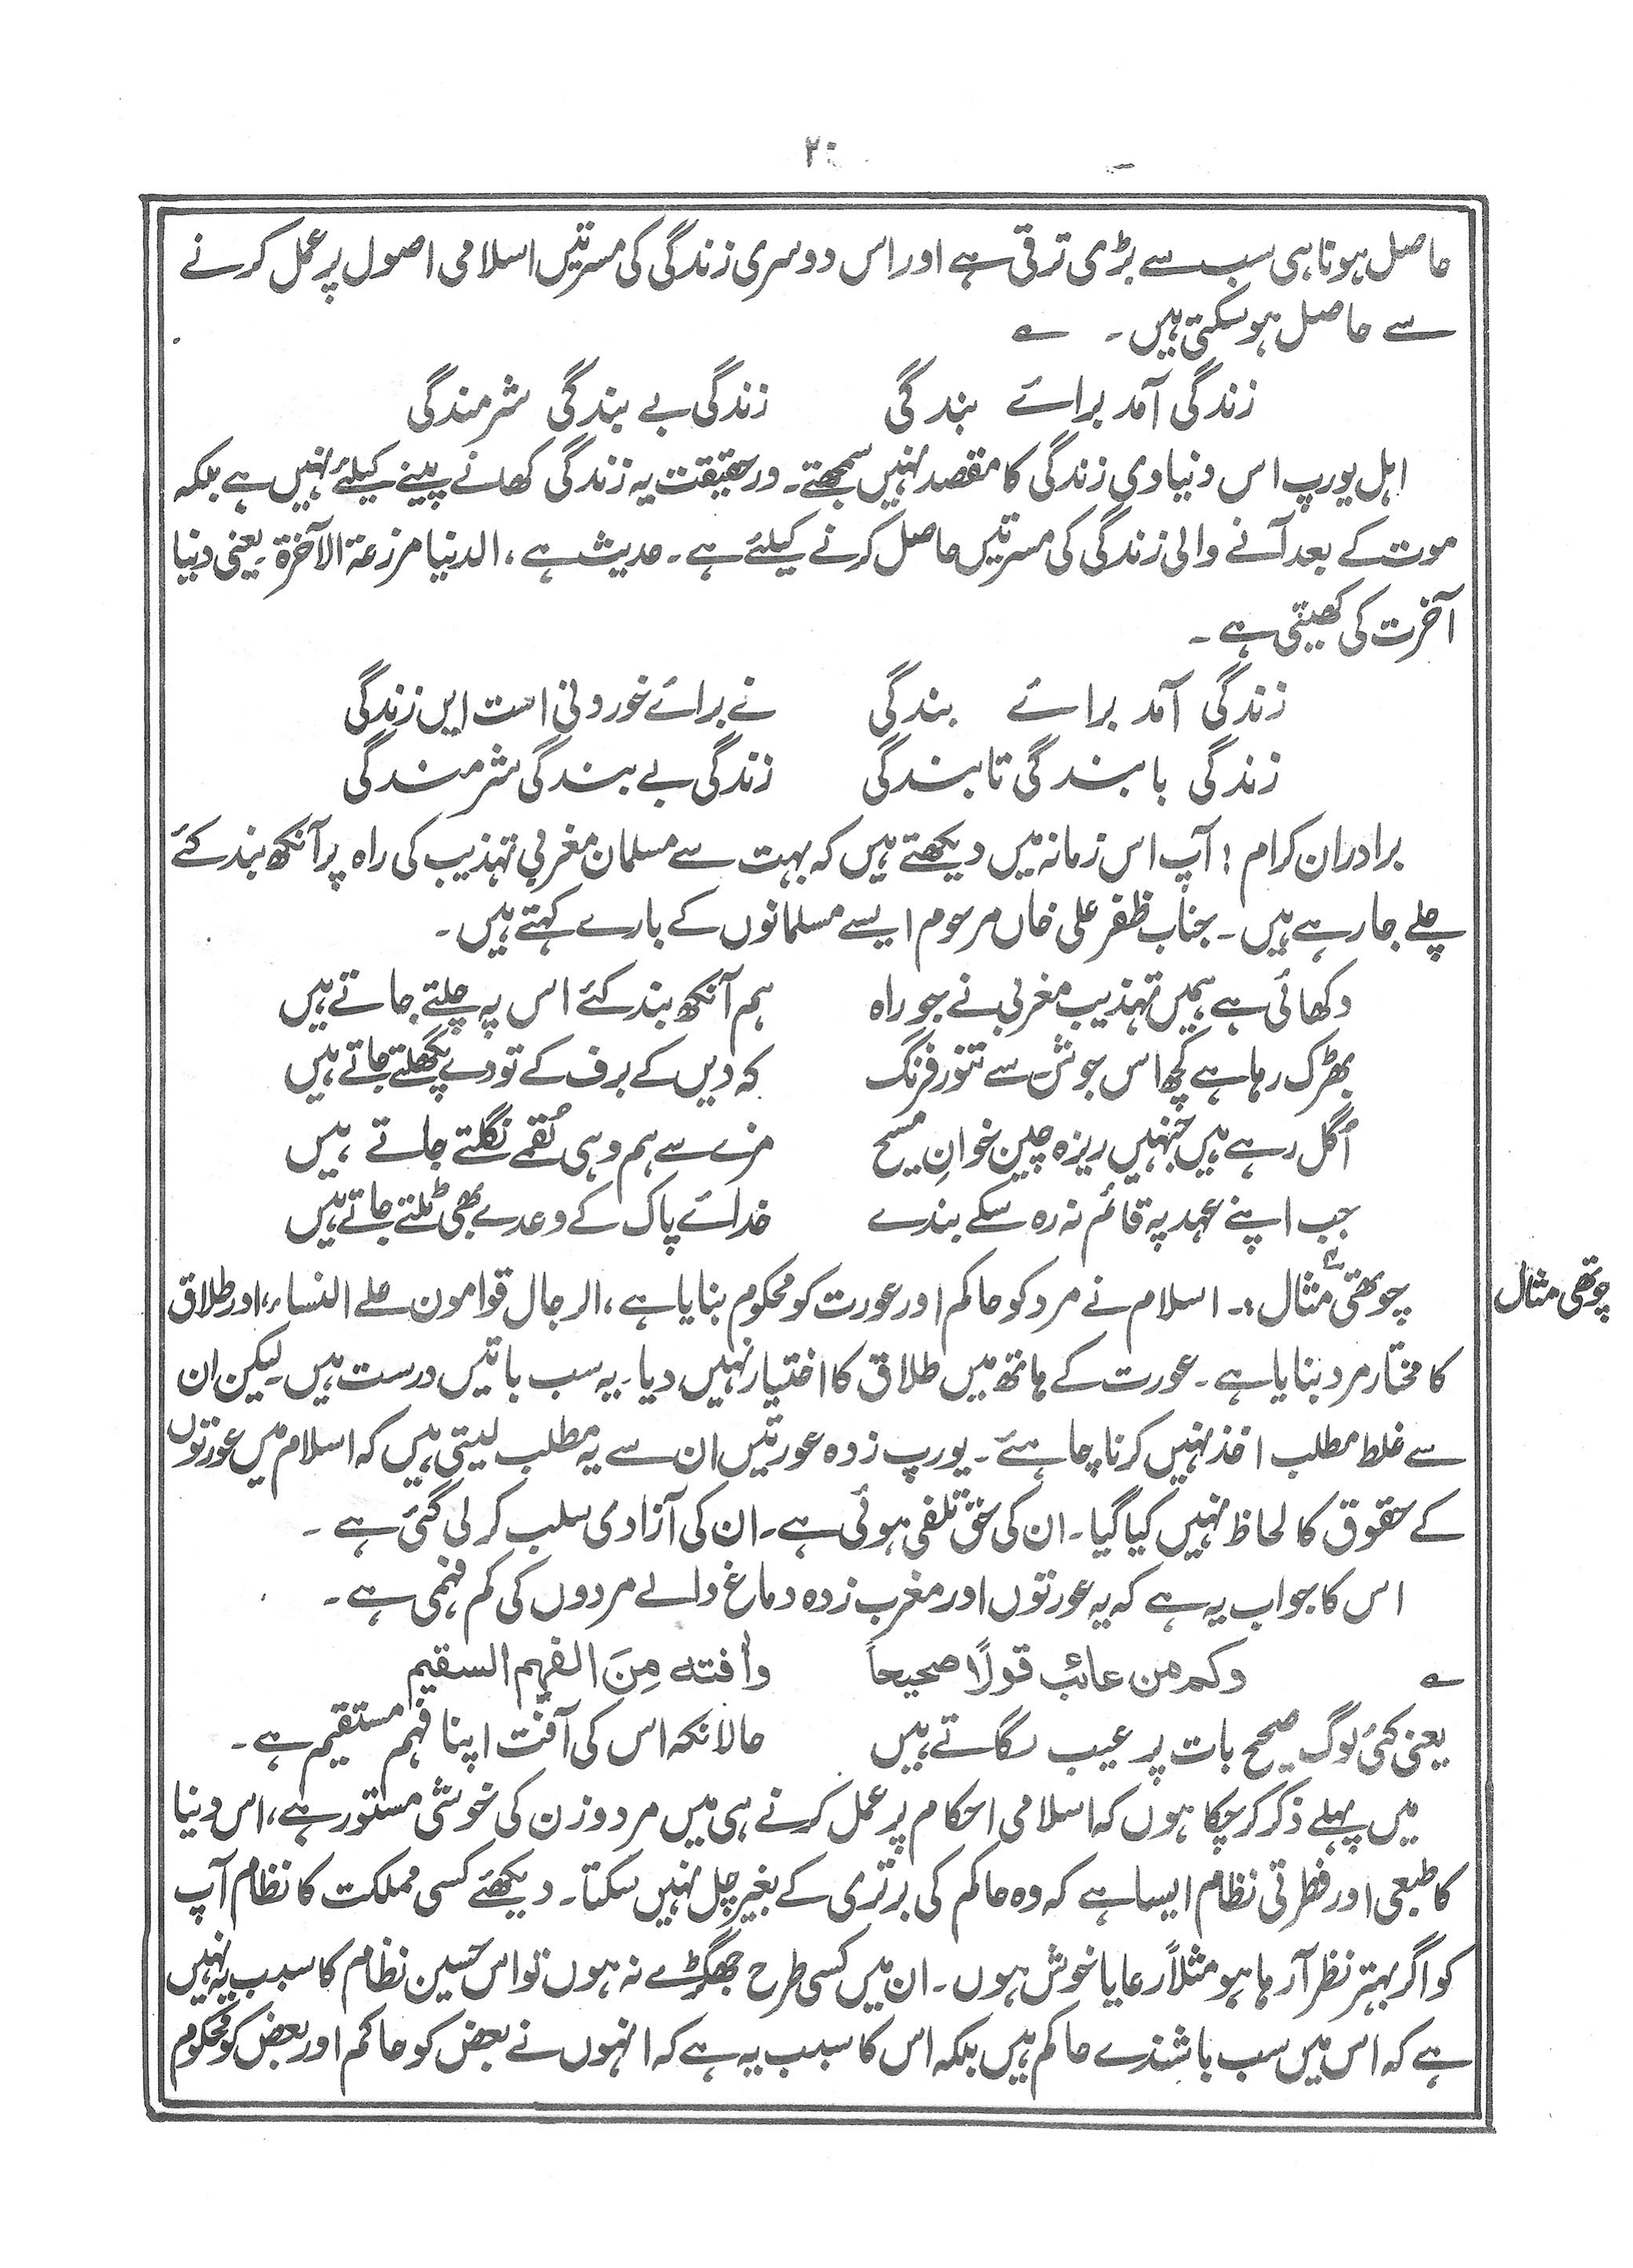 ۲۰
حاصل ہونا ہی سب سے بڑی ترقی ہے اور اس دوسری زندگی کی مسرتیں اسلامی اصول پر عمل کرنے
سے حاصل ہو سکتی ہیں۔ ؎
زندگی آمد برائے بندگی زندگی بے بندگی شرمندگی
اہل یورپ اس دنیاوی زندگی کا مقصد نہیں سمجھتے۔ درحقیقت یہ زندگی کھانے پینے کیلئے نہیں ہے بلکہ
موت کے بعد آنے والی زندگی کی مسرتیں حاصل کرنے کیلئے ہے۔ حدیث ہے، الدنیا مزرعۃ الآخرۃ۔ یعنی دنیا
آخرت کی کھیتی ہے۔
زندگی آمد برائے بندگی نے برائے خوردنی است ایں زندگی
زندگی با بندگی تابندگی زندگی بے بندگی شرمندگی
برادران کرام! آپ اس زمانہ میں دیکھتے ہیں کہ بہت سے مسلمان مغربی تہذیب کی راہ پر آنکھ بند کئے
چلے جا رہے ہیں۔ جناب ظفر علی خاں مرحوم ایسے مسلمانوں کے بارے کہتے ہیں۔
دکھائی ہے ہمیں تہذیب مغربی نے جو راہ ہم آنکھ بند کئے اس پہ چلتے جاتے ہیں
بھڑک رہا ہے کچھ اس جوش سے تنور فرنگ کہ دیں کے برف کے تودے پگھلتے جاتے ہیں
اُگل رہے ہیں جنہیں ریزہ چین خوانِ مسیح مزے سے ہم وہی لُقمے نگلتے جاتے ہیں
جب اپنے عہد پہ قائم نہ رہ سکے بندے خدائے پاک کے وعدے بھی ٹلتے جاتے ہیں
چوتھی مثال
چوتھی مثال:۔ اسلام نے مرد کو حاکم اور عورت کو محکوم بنایا ہے، الرجال قوامون علے النساء، اور طلاق
کا مختار مرد بنایا ہے۔ عورت کے ہاتھ میں طلاق کا اختیار نہیں دیا۔ یہ سب باتیں درست ہیں۔ لیکن ان
سے غلط مطلب اخذ نہیں کرنا چاہئے۔ یورپ زدہ عورتیں ان سے یہ مطلب لیتی ہیں کہ اسلام میں عورتوں
کے حقوق کا لحاظ نہیں کیا گیا۔ ان کی حق تلفی ہوئی ہے۔ ان کی آزادی سلب کر لی گئی ہے۔
اس کا جواب یہ ہے کہ یہ عورتوں اور مغرب زدہ دماغ والے مردوں کی کم فہمی ہے۔
؎ وکم من عائب قولًا صحیحاً واٰفتہ مِنَ الفہم السقیم
یعنی کئی لوگ صحیح بات پر عیب لگاتے ہیں حالانکہ اس کی آفت اپنا فہم مستقیم ہے۔
میں پہلے ذکر کر چکا ہوں کہ اسلامی احکام پر عمل کرنے ہی میں مرد و زن کی خوشی مستور ہے، اس دنیا
کا طبعی اور فطرتی نظام ایسا ہے کہ وہ حاکم کی برتری کے بغیر چل نہیں سکتا۔ دیکھئے کسی مملکت کا نظام آپ
کو اگر بہتر نظر آ رہا ہو مثلاً رعایا خوش ہوں۔ ان میں کسی طرح جھگڑے نہ ہوں تو اس حسین نظام کا سبب یہ نہیں
ہے کہ اس میں سب باشندے حاکم ہیں بلکہ اس کا سبب یہ ہے کہ انہوں نے بعض کو حاکم اور بعض کو محکوم